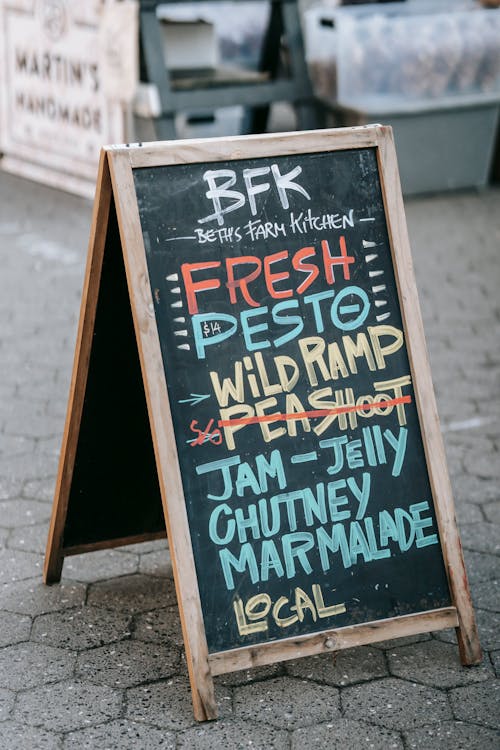 MARTIN'S
HANDMADE
BFK
BETH'S FARM KITCHEN
FRESH
$14
PESTO
WILD RAMP
PEASHOOT
JAM - JELLY
CHUTNEY
MARMALADE
LOCAL